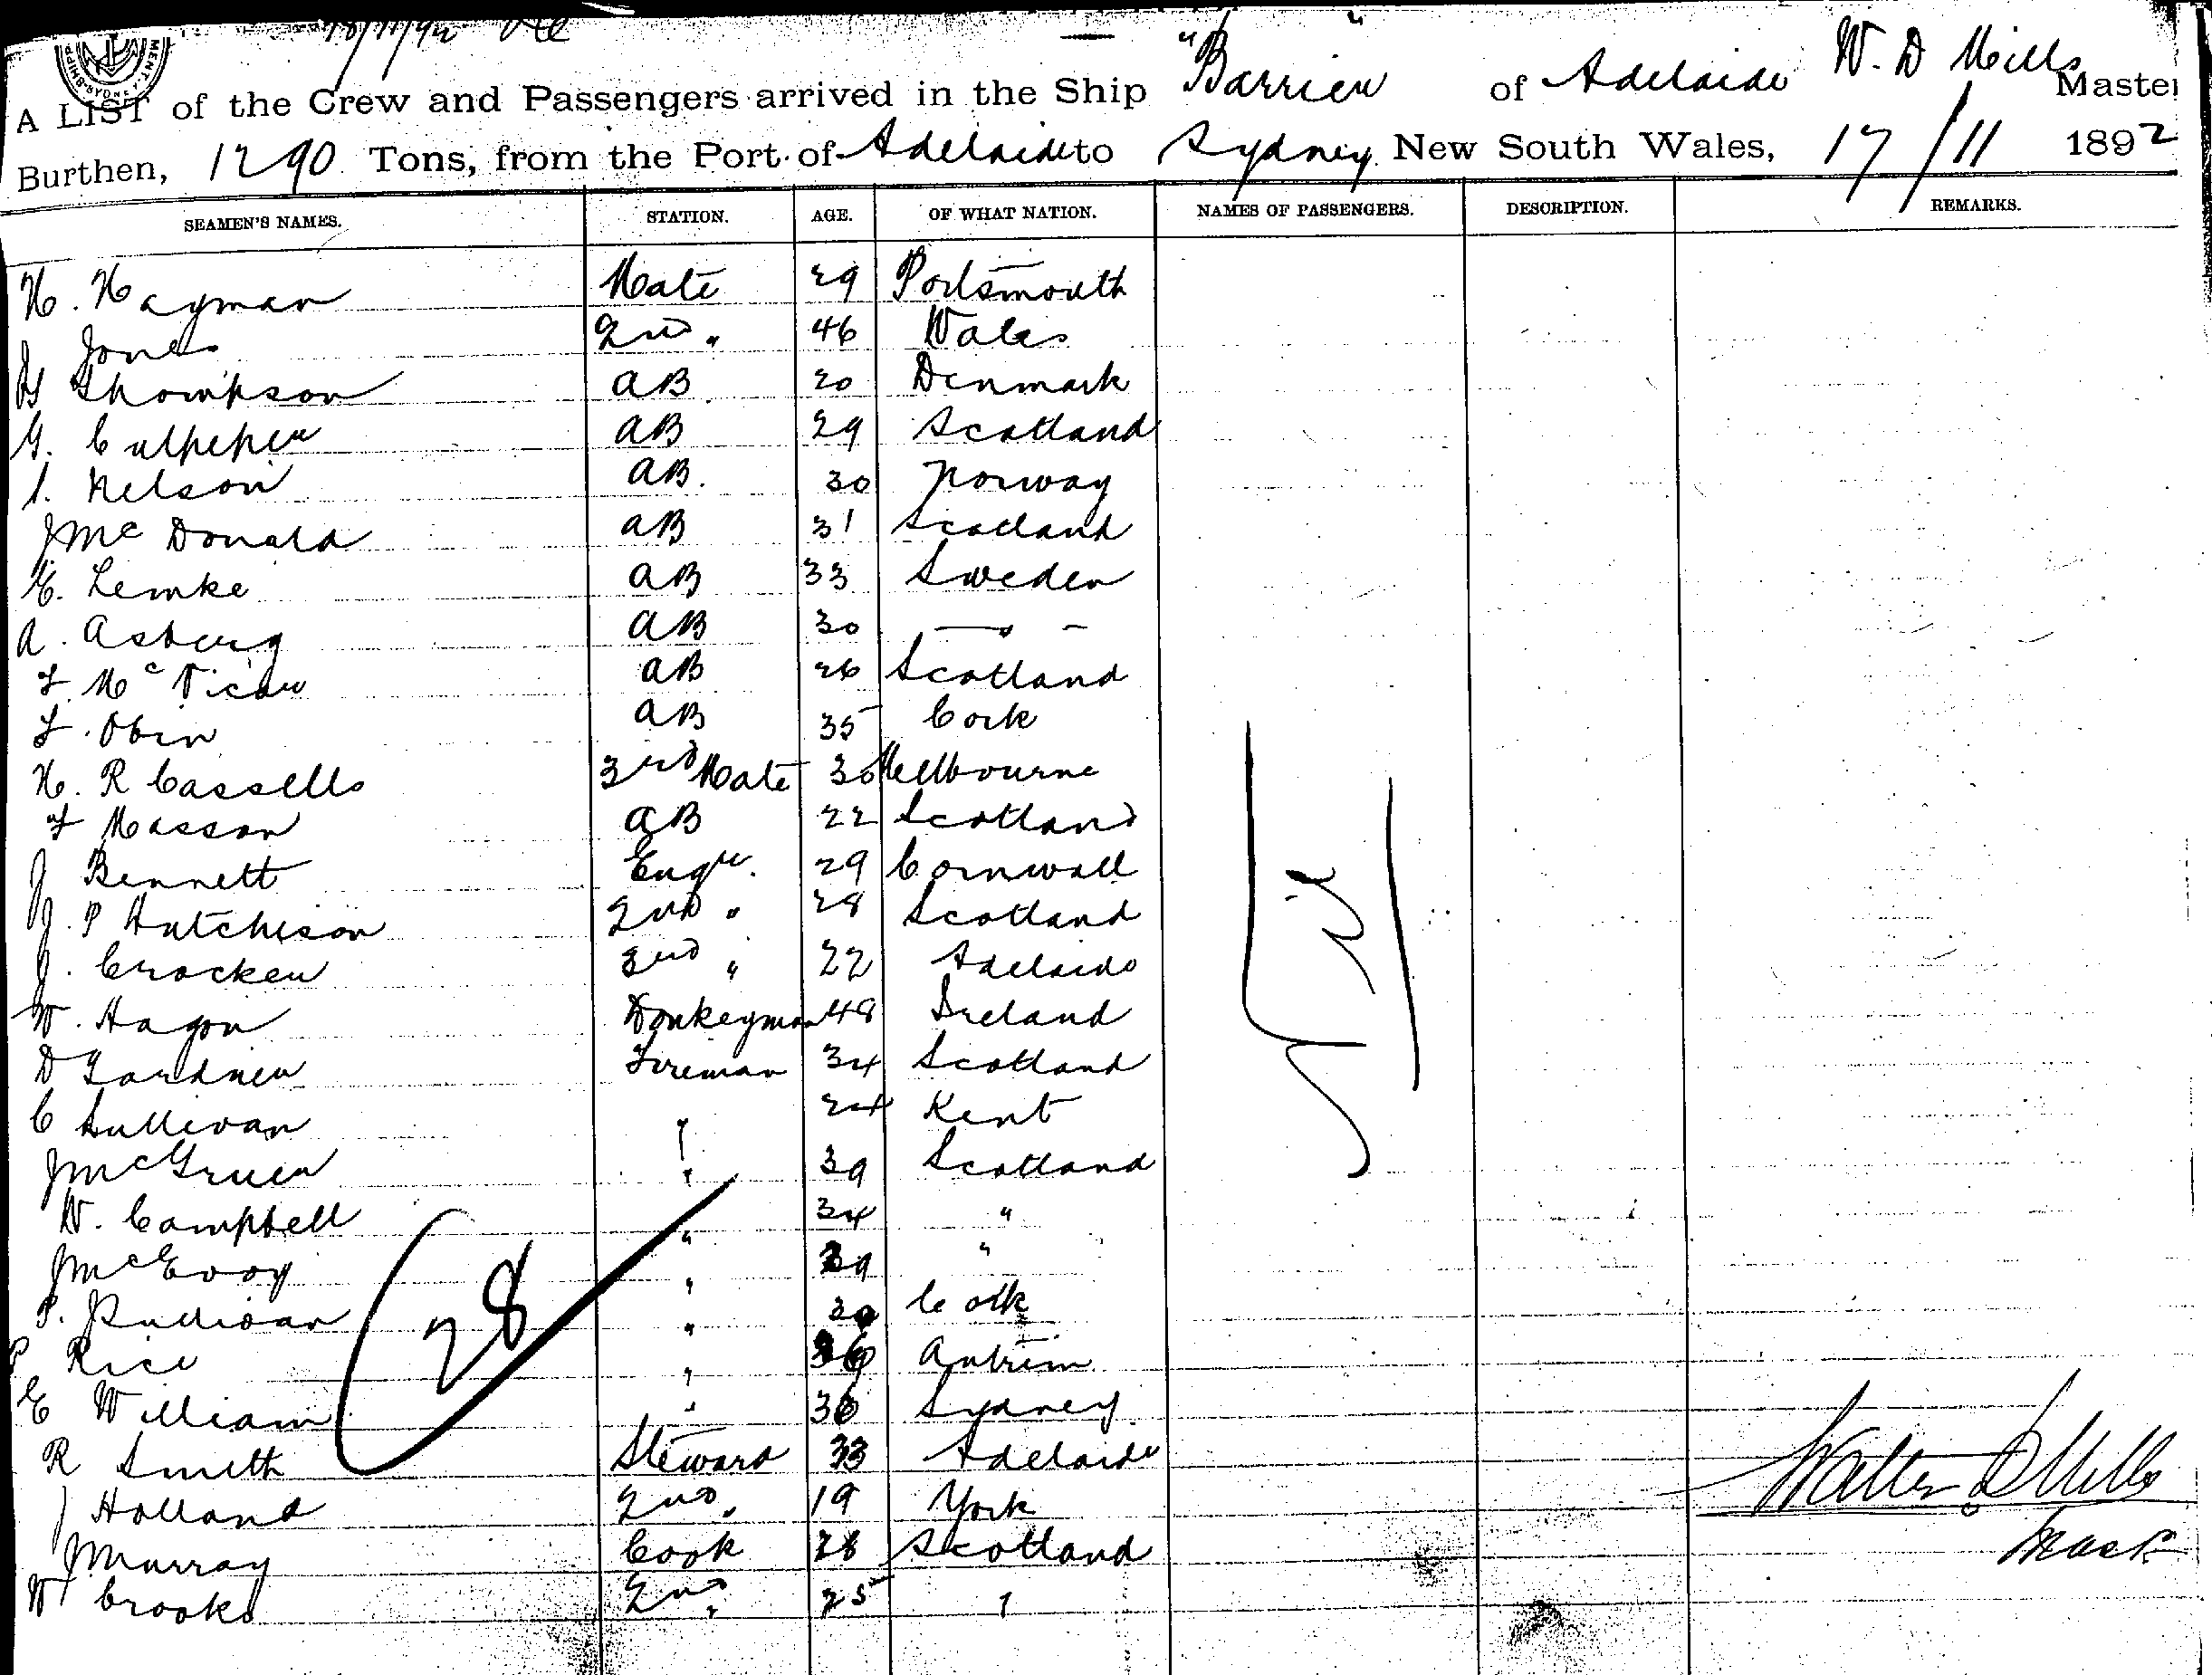 18/11/92
A LIST of the Crew and Passengers arrived in the Ship "Barrier" of Adelaide W. D Mills Master
Burthen, 1290 Tons, from the Port of Adelaide to Sydney New South Wales, 17/11 1892
SEAMEN'S NAMES. STATION. AGE. OF WHAT NATION. NAMES OF PASSENGERS. DESCRIPTION. REMARKS.
H. Hayman Mate 29 Portsmouth
J Jones 2nd " 46 Wales
H Thompson AB 20 Denmark
G. Culpeper AB 29 Scotland
Nelson AB. 30 Norway
J McDonald AB 31 Scotland
E. Lemke AB 33 Sweden
A. Asberg AB 30 — " —
F. McVicar AB 26 Scotland
F. Obin AB 35 Cork
H. R Cassells 3rd Mate 30 Melbourne
F Masson AB 22 Scotland
J Bennett Engr. 29 Cornwall
J. P Hutcheson 2nd " 28 Scotland
J. Crocker 3rd " 22 Adelaide
W. Hagon Donkeyman 48 Ireland
D Gardner Fireman 34 Scotland
C Sullivan " 24 Kent
J McGruer " 39 Scotland
W. Campbell " 34 "
J McEvoy " 39 "
P. Sullivan " 30 Cork
P Rice " 36 Antrim
E William " 36 Sydney
R Smith Steward 33 Adelaide
J Holland 2nd " 19 York
J Murray Cook 28 Scotland
W Crooks 2nd " 25 "
Nil
28
Walter D Mills
Mast